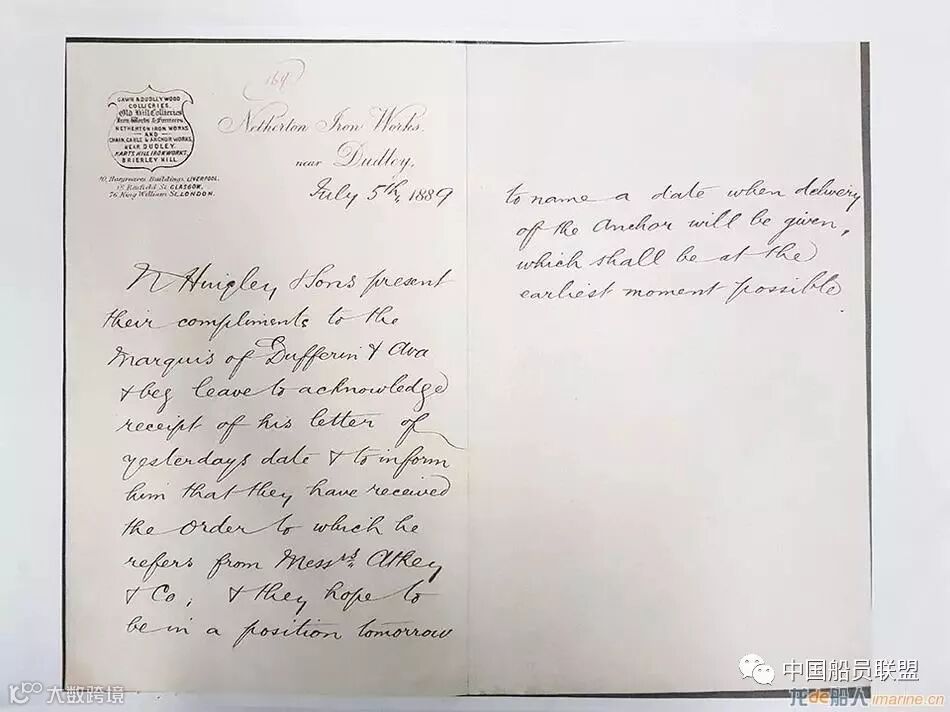 164
GAWN & DUDLEY WOOD
COLLIERIES.
Old Hill Collieries
Iron Works & Furnaces.
NETHERTON IRON WORKS
AND
CHAIN, CABLE & ANCHOR WORKS,
NEAR DUDLEY.
HARTS HILL IRONWORKS,
BRIERLEY HILL.
10, Hargreaves Buildings, LIVERPOOL.
St. GLASGOW.
76, King William St. LONDON.
Netherton Iron Works,
near Dudley,
July 5th, 1889
N Hingley & Sons present
their compliments to the
Marquis of Dufferin & Ava
& beg leave to acknowledge
receipt of his letter of
yesterdays date & to inform
him that they have received
the order to which he
refers from Messrs. Atkey
& Co, & they hope to
be in a position tomorrow
to name a date when delivery
of the Anchor will be given,
which shall be at the
earliest moment possible.
中国船员联盟
大数跨境
龙de船人 imarine.cn